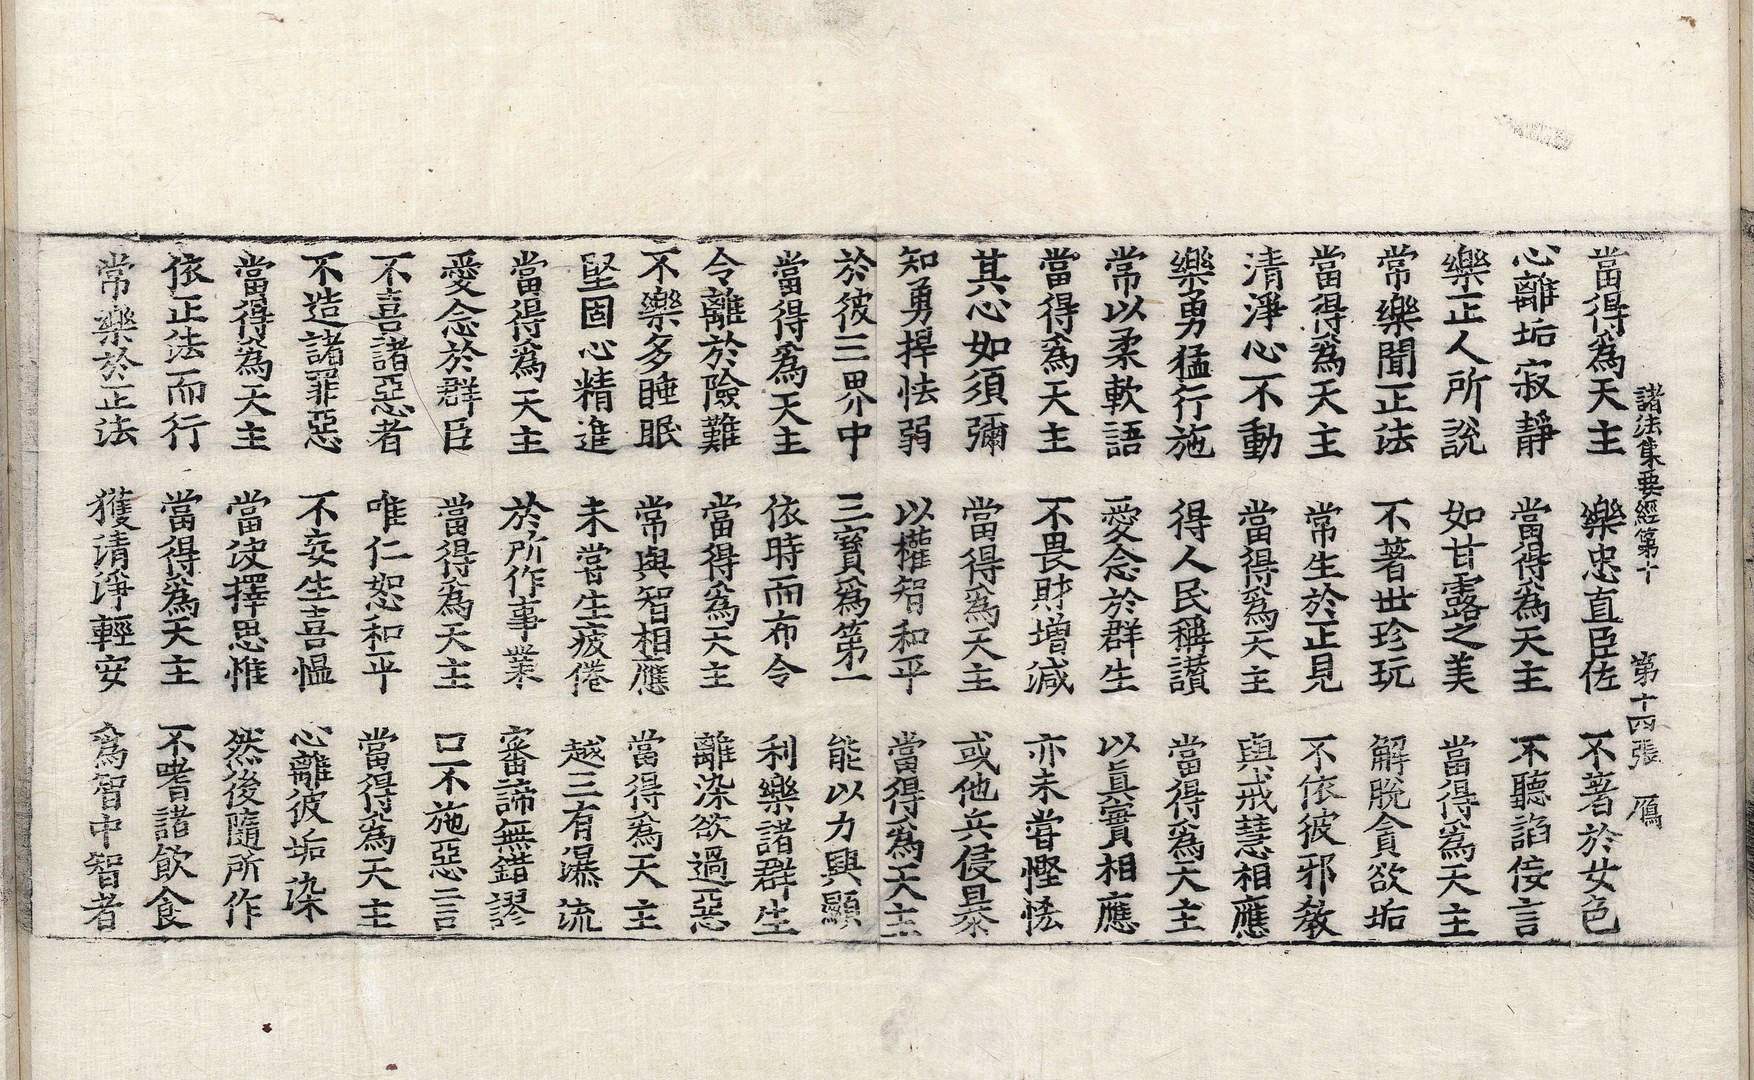 諸法集要經第十 第十四張 鴈
當得爲天主 樂忠直臣佐 不著於女色
心離垢寂靜 當得爲天主 不聽諂侫言
樂正人所說 如甘露之美 當得爲天主
常樂聞正法 不著世珍玩 解脫貪欲垢
當得爲天主 常生於正見 不依彼邪敎
清淨心不動 當得爲天主 與戒慧相應
樂勇猛行施 得人民稱讚 當得爲天主
常以柔軟語 愛念於群生 以眞實相應
當得爲天主 不畏財增減 亦未甞慳悋
其心如須彌 當得爲天主 或他兵侵暴
知勇捍怯弱 以權智和平 當得爲天主
於彼三界中 三寶爲第一 能以力興顯
當得爲天主 依時而布令 利樂諸群生
令離於險難 當得爲天主 離染欲過惡
不樂多睡眠 常與智相應 當得爲天主
堅固心精進 未甞生疲倦 越三有瀑流
當得爲天主 於所作事業 審諦無錯謬
愛念於群臣 當得爲天主 口不施惡言
不喜諸惡者 唯仁恕和平 當得爲天主
不造諸罪惡 不妄生喜慍 心離彼垢染
當得爲天主 當决擇思惟 然後隨所作
依正法而行 當得爲天主 不嗜諸飮食
常樂於正法 獲清淨輕安 爲智中智者